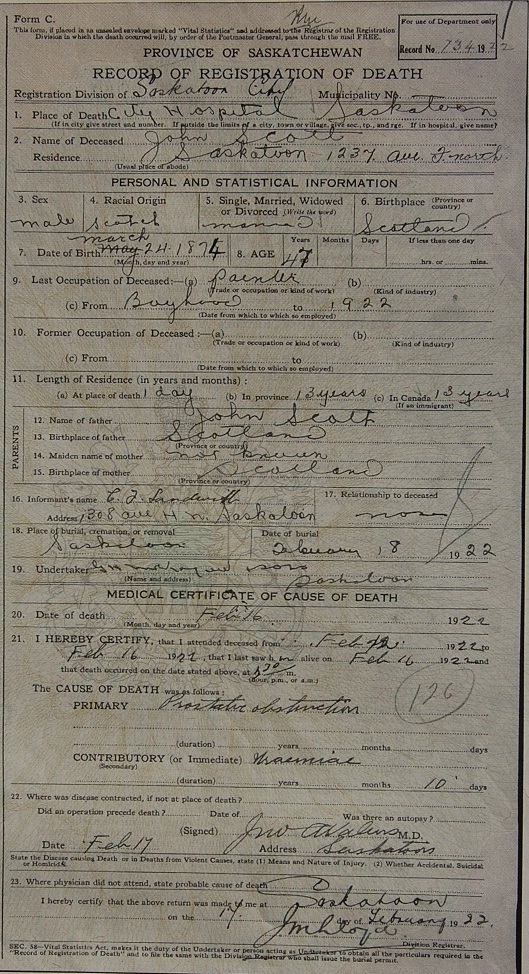 Form C.
This form, if placed in an unsealed envelope marked "Vital Statistics" and addressed to the Registrar of the Registration
Division in which the death occurred will, by order of the Postmaster General, pass through the mail FREE.
For use of Department only
Record No. 734 1922
PROVINCE OF SASKATCHEWAN
RECORD OF REGISTRATION OF DEATH
Registration Division of Saskatoon City Municipality No.
1. Place of Death City Hospital Saskatoon
(If in city give street and number. If outside the limits of a city, town or village, give sec., tp., and rge. If in hospital, give name)
2. Name of Deceased John Scott
Residence Saskatoon 1237 ave. F. north
(Usual place of abode)
PERSONAL AND STATISTICAL INFORMATION
3. Sex 4. Racial Origin 5. Single, Married, Widowed or Divorced (Write the word) 6. Birthplace (Province or country)
male Scotch married Scotland
7. Date of Birth May march 24. 1874 8. AGE Years 47 Months Days If less than one day
(Month, day and year) hrs. or mins.
9. Last Occupation of Deceased:—(a) Painter (b)
(Trade or occupation or kind of work) (Kind of industry)
(c) From Boyhood to 1922
(Date from which to which so employed)
10. Former Occupation of Deceased:—(a) (b)
(Trade or occupation or kind of work) (Kind of industry)
(c) From to
(Date from which to which so employed)
11. Length of Residence (in years and months):
(a) At place of death 1 day (b) In province 13 years (c) In Canada 13 years
(If an immigrant)
PARENTS
12. Name of father John Scott
13. Birthplace of father Scotland
(Province or country)
14. Maiden name of mother not known
15. Birthplace of mother Scotland
(Province or country)
16. Informant's name 17. Relationship to deceased
Address 1308 ave H n. Saskatoon none
18. Place of burial, cremation, or removal Date of burial
Saskatoon February 18 1922
19. Undertaker sons Saskatoon
(Name and address)
MEDICAL CERTIFICATE OF CAUSE OF DEATH
20. Date of death Feb 16 1922
(Month, day and year)
21. I HEREBY CERTIFY, that I attended deceased from Feb 1922 to
Feb 16 1922, that I last saw him alive on Feb 16 1922 and
that death occurred on the date stated above, at m.
(Hour, p.m. or a.m.)
The CAUSE OF DEATH was as follows: 126
PRIMARY Prostatic obstruction
(duration) years months days
CONTRIBUTORY (or Immediate) Uraemiae
(Secondary)
(duration) years months 10 days
22. Where was disease contracted, if not at place of death?
Did an operation precede death? Date of Was there an autopsy?
(Signed) M.D.
Date Feb 17 Address Saskatoon
State the Disease causing Death or in Deaths from Violent Causes, state (1) Means and Nature of Injury. (2) Whether Accidental, Suicidal
or Homicidal.
23. Where physician did not attend, state probable cause of death
I hereby certify that the above return was made to me at Saskatoon
on the 17 day of February 1922.
Division Registrar.
SEC. 38—Vital Statistics Act, makes it the duty of the Undertaker or person acting as Undertaker to obtain all the particulars required in the
"Record of Registration of Death" and to file the same with the Division Registrar who shall issue the burial permit.